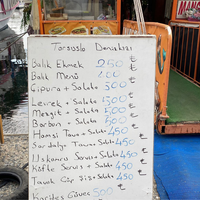 Balık Ekmek 250 ₺
Balık Menü 400 ₺
Çipura + Salata 500 ₺
Levrek + Salata 500 ₺
Mezgit + Salata 500 ₺
Barbun + Salata 500 ₺
Hamsi Tava + Salata 450 ₺
Sardalya Tava + Salata 450 ₺
Uskumru Servis + Salata 450 ₺
Köfte Servis + Salata 450 ₺
Tavuk Çöp Şiş + Salata 450 ₺
Karides Güveç 500 ₺